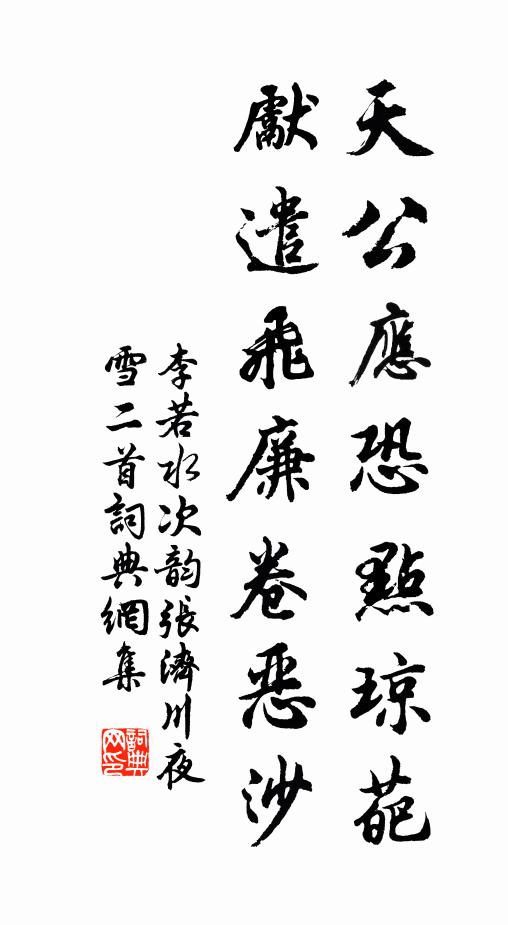 天公應恐點瓊葩
獻遣飛廉卷惡沙
李若水次韵張濟川夜
雪二首詞典網集
詞典网印